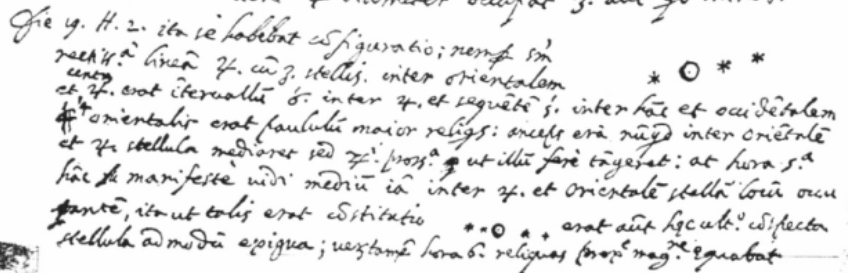 Die 19. H. 2. ita se habebat cōfiguratio; nempe sm̃
rectiss.ᵃ lineā ♃. cū 3. stellis. inter orientalem
centrū
et ♃. erat ītervallū 6. inter ♃. et seqūetē 5. inter hāc et occidētalem
4 orientalis erat paululū maior reliqs: anceps erā nūqd inter oriētalē
et ♃. stellula mediaret sed ♃.ⁱ prox.ᵃ ut illū ferè tāgeret: at hora 5.ᵃ
hāc manifestè vidi mediū iā inter ♃. et orientalē stellā locū occu
pantē, ita ut talis erat cōstitutio erat aūt hęc ult.ᵒ cōspecta
stellula admodū exigua; verūtamē hora 6. reliquas prop.ᵉ mag.ⁿᵉ equabat